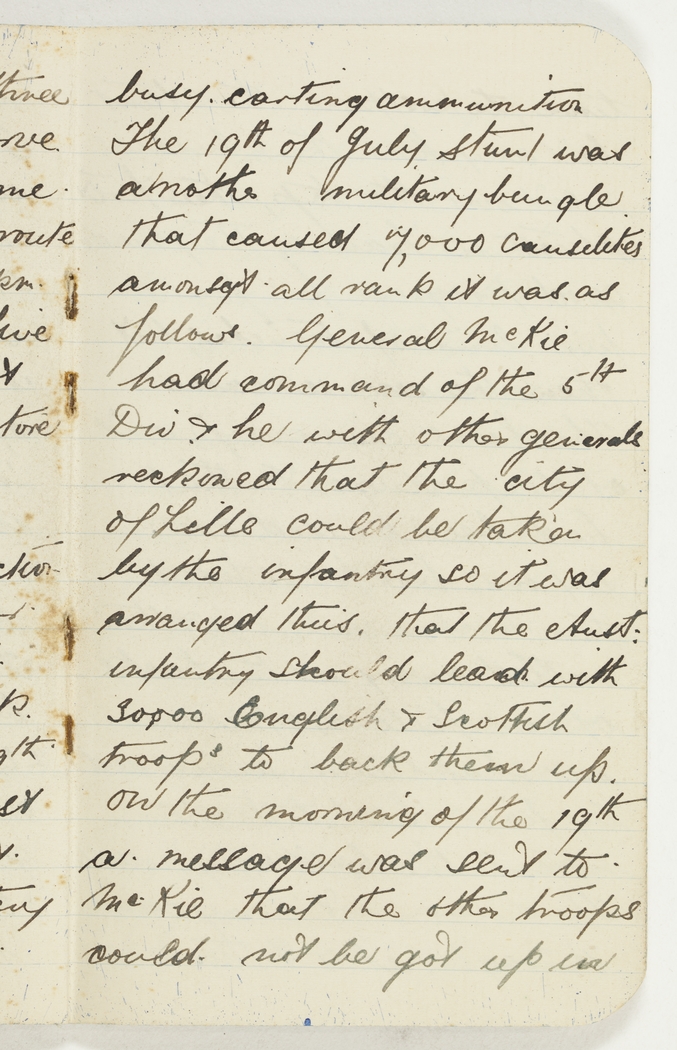 busy. carting ammunition
The 19th of July stunt was
anothe military bungle
that caused 7,000 causelites
amonsgt all rank it was as
follows. General McKie
had command of the 5th
Div & he with other generals
reckoned that the city
of Lille could be taken
by the infantry so it was
arranged thus. that the Aust:
infantry should lead with
30,000 English & Scottish
troops to back them up.
On the morning of the 19th
a message was sent to
McKie that the other troops
could not be got up in
three
rve
me.
route
km.
live
&
tore
ction
k.
9th
st